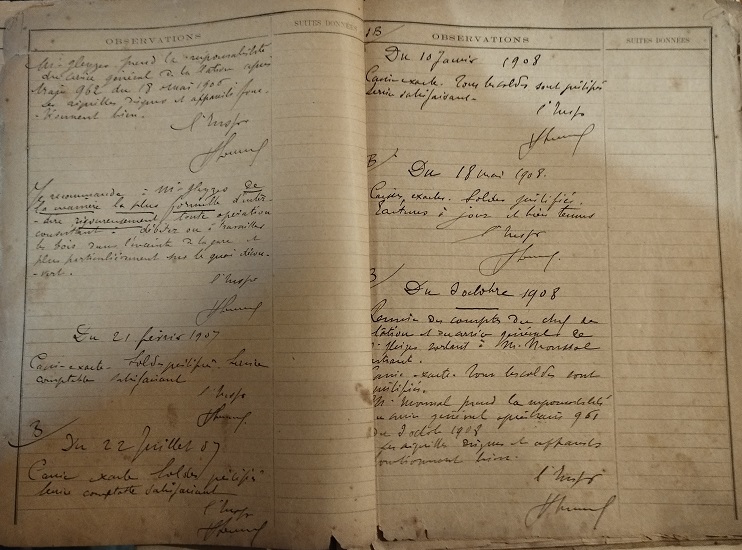 OBSERVATIONS
SUITES DONNÉES
Mr Gleyzes prend la responsabilité
du service général de la station après
train 962 du 18 mai 1906
Les aiguilles, disques et appareils fonc-
-tionnent bien.
l'Inspr
Je recommande à Mr Gleyzes de
la manière la plus formelle d'inter-
-dire rigoureusement toute opération
consistant à débiter ou à travailler
les bois dans l'enceinte de la gare et
plus particulièrement sur le quai décou-
-vert.
l'Inspr
Du 21 février 1907
Caisse exacte. Soldes justifiés. Service
comptable satisfaisant
l'Inspr
B
Du 22 Juillet 07
Caisse exacte Soldes justifiés
Service comptable satisfaisant
l'Inspr
OBSERVATIONS
SUITES DONNÉES
B
Du 10 Janvier 1908
Caisse exacte. Tous les soldes sont justifiés
Service satisfaisant.
l'Inspr
B
Du 18 mai 1908.
Caisse exacte. Soldes justifiés.
Ecritures à jour et bien tenues
l'Inspr
B
Du 3 octobre 1908
Remise des comptes du chef de
station et du service général de
Gleizes sortant à Mr Moussal
entrant.
Caisse exacte. Tous les soldes sont
justifiés.
Mr Moussal prend la responsabilité
du service général après train 961
du 3 octobre 1908
Les aiguilles disques et appareils
fonctionnent bien.
l'Inspr